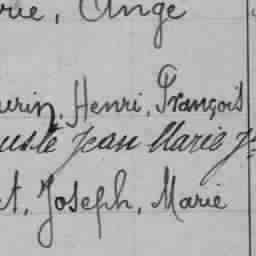 rie, Ange
urin, Henri, François
uste Jean Marie J
et, Joseph, Marie